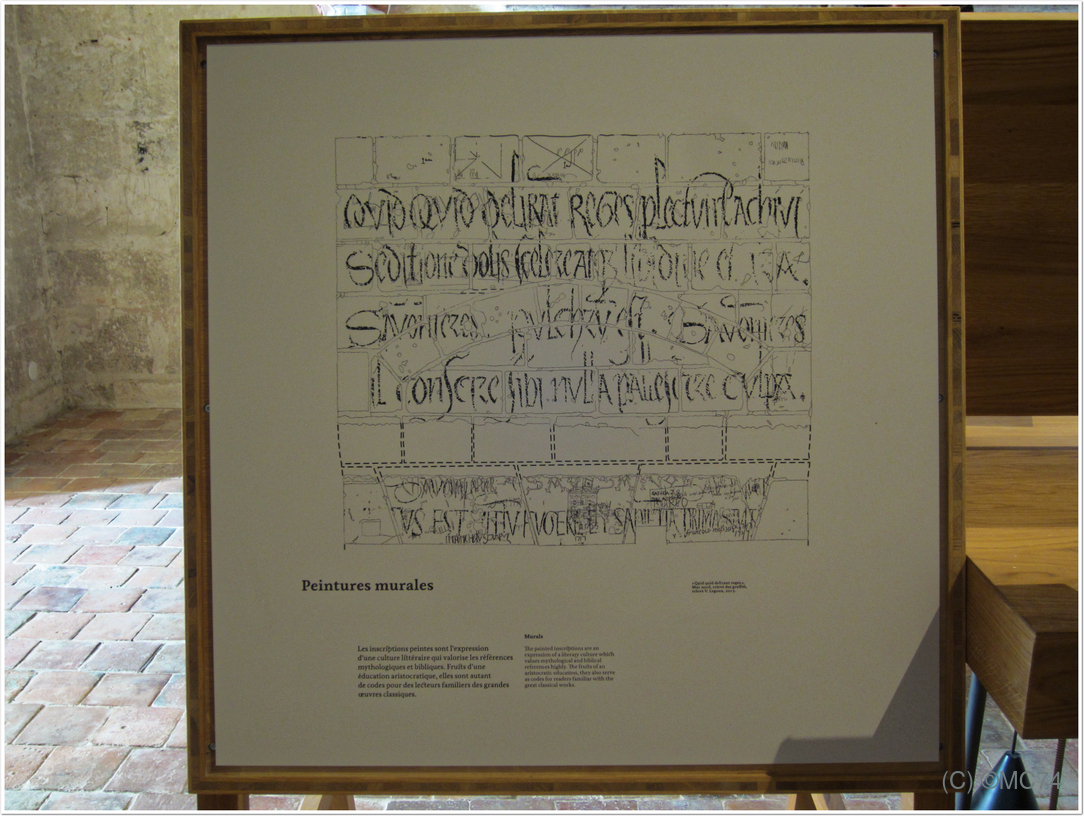 QVID QVID deLIRAT REGES plectuntur Achivi
Seditione dolis scelere atq libidine et ira
Savonieres pulchru est Savonieres
Il conscere sibi nulla palescere culpa.
VS EST
Peintures murales
« Quid quid delirant reges »,
Les inscriptions peintes sont l'expression
d'une culture littéraire qui valorise les références
mythologiques et bibliques. Fruits d'une
éducation aristocratique, elles sont autant
de codes pour des lecteurs familiers des grandes
œuvres classiques.
Murals
The painted inscriptions are an
expression of a literary culture which
values mythological and biblical
references highly. The fruits of an
aristocratic education, they also serve
as codes for readers familiar with the
great classical works.
(C) ©MC